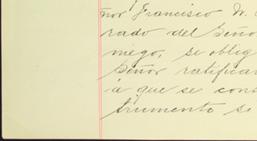 ñor Francisco N.
rado del Seño
niego, se oblig
Señor ratificar
á que se cons
trumento se